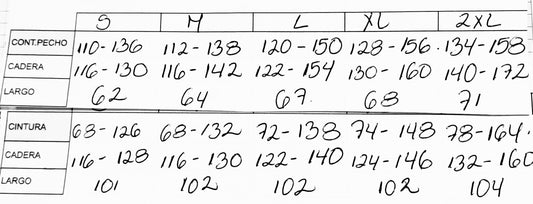 S M L XL 2XL
CONT.PECHO 110-136 112-138 120-150 128-156. 134-158
CADERA 116-130 116-142 122-154 130-160 140-172
LARGO 62 64 67. 68 71
CINTURA 68-126 68-132 72-138 74-148 78-164.
CADERA 116-128 116-130 122-140 124-146 132-160
LARGO 101 102 102 102 104